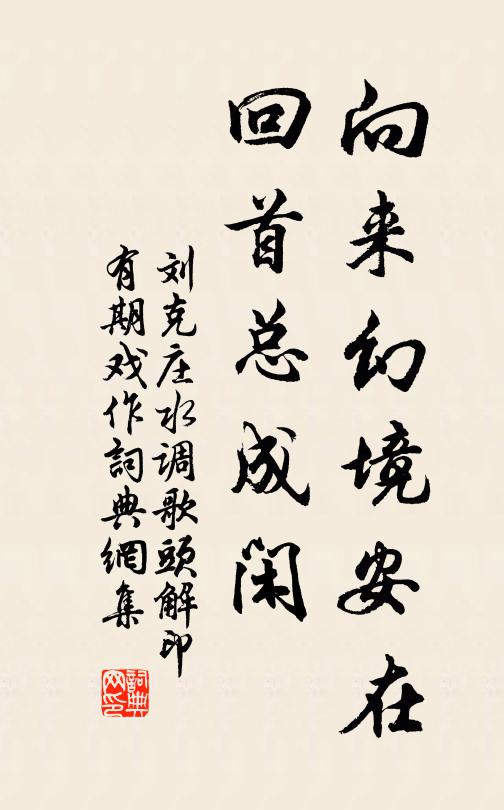 向来幻境安在
回首总成闲
刘克庄水调歌頭解印
有期戏作詞典網集
詞典
网印